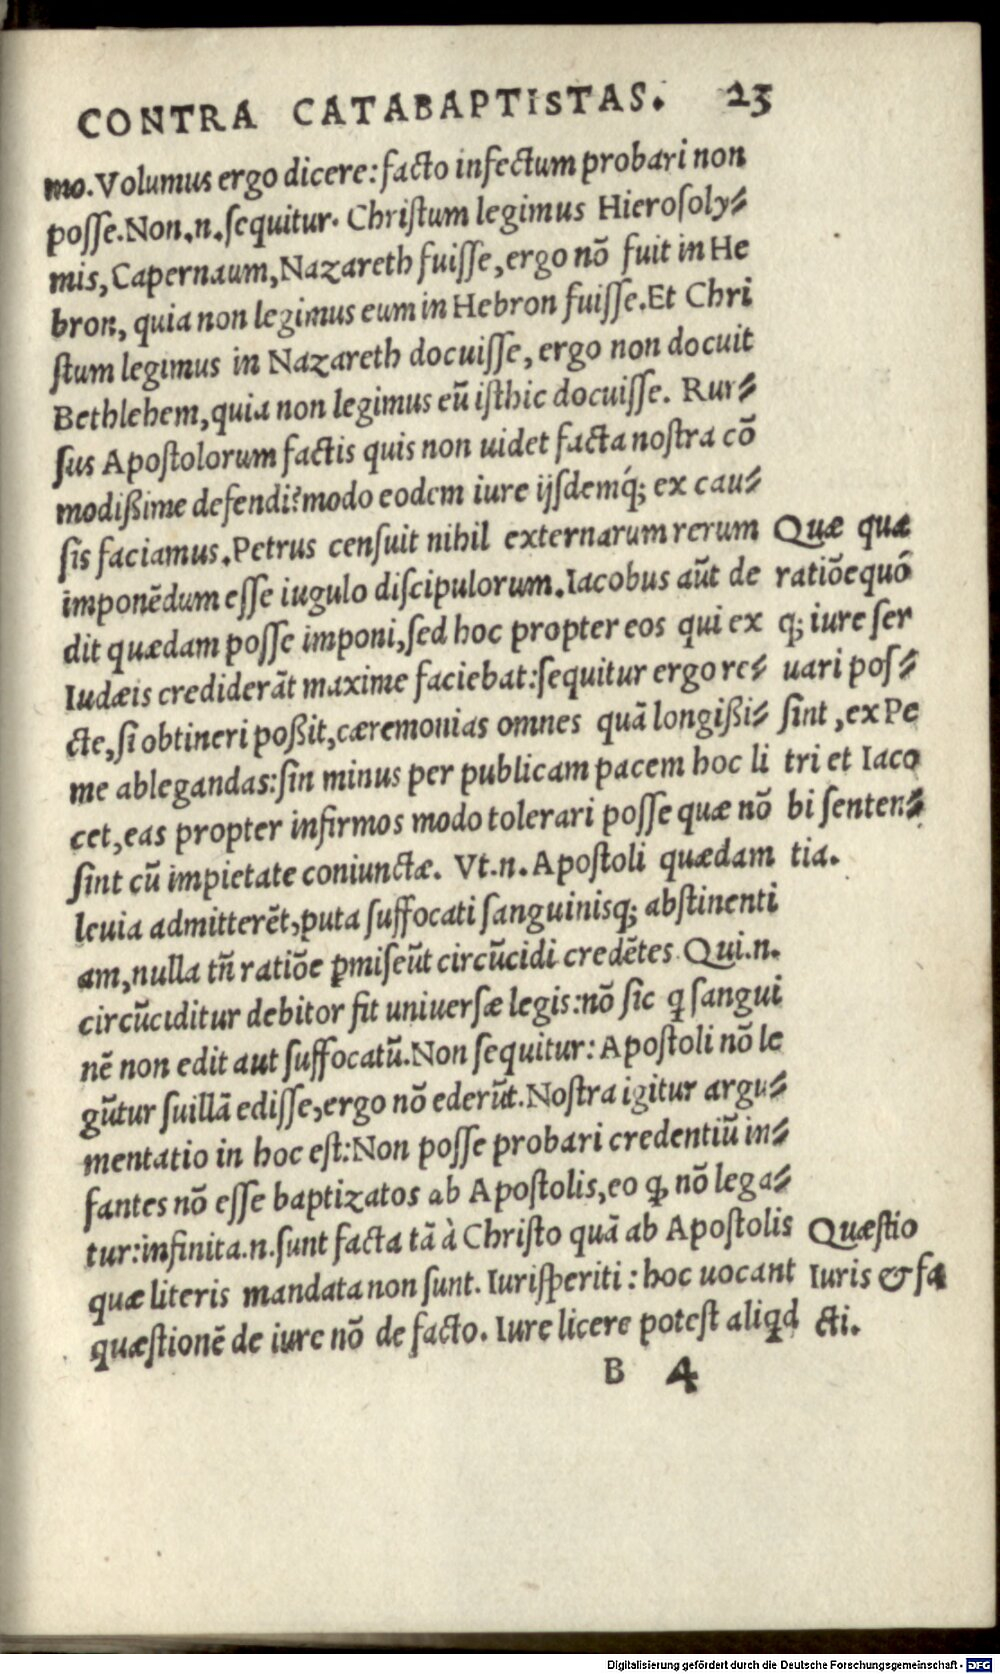 CONTRA CATABAPTISTAS. 23
mo. Volumus ergo dicere: facto infectum probari non
posse. Non .n. sequitur. Christum legimus Hierosoly⸗
mis, Capernaum, Nazareth fuisse, ergo nō fuit in He
bron, quia non legimus eum in Hebron fuisse. Et Chri
stum legimus in Nazareth docuisse, ergo non docuit
Bethlehem, quia non legimus eū isthic docuisse. Rur⸗
sus Apostolorum factis quis non uidet facta nostra cō
modißime defendi? modo eodem iure ijsdemq́; ex cau⸗
sis faciamus. Petrus censuit nihil externarum rerum
imponēdum esse iugulo discipulorum. Iacobus aūt de
dit quædam posse imponi, sed hoc propter eos qui ex
Iudæis crediderāt maxime faciebat: sequitur ergo re⸗
cte, si obtineri poßit, cæremonias omnes quā longißi⸗
me ablegandas: sin minus per publicam pacem hoc li
cet, eas propter infirmos modo tolerari posse quæ nō
sint cū impietate coniunctæ. Vt .n. Apostoli quædam
leuia admitterēt, puta suffocati sanguinisq; abstinenti
am, nulla tn̄ ratiōe ꝑmiseūt circūcidi credētes. Qui .n.
circūciditur debitor fit uniuersæ legis: nō sic q̄ sangui
nē non edit aut suffocatū. Non sequitur: Apostoli nō le
gūtur suillā edisse, ergo nō ederūt. Nostra igitur argu⸗
mentatio in hoc est: Non posse probari credentiū in⸗
fantes nō esse baptizatos ab Apostolis, eo ꝙ nō lega⸗
tur: infinita .n. sunt facta tā à Christo quā ab Apostolis
quæ literis mandata non sunt. Iurisperiti: hoc uocant
quæstionē de iure nō de facto. Iure licere potest aliqd
Quæ qua
ratiōe quó
q; iure ser
uari pos⸗
sint, ex Pe
tri et Iaco
bi senten⸗
tia.
Quæstio
Iuris & fa
cti.
B 4
Digitalisierung gefördert durch die Deutsche Forschungsgemeinschaft - DFG